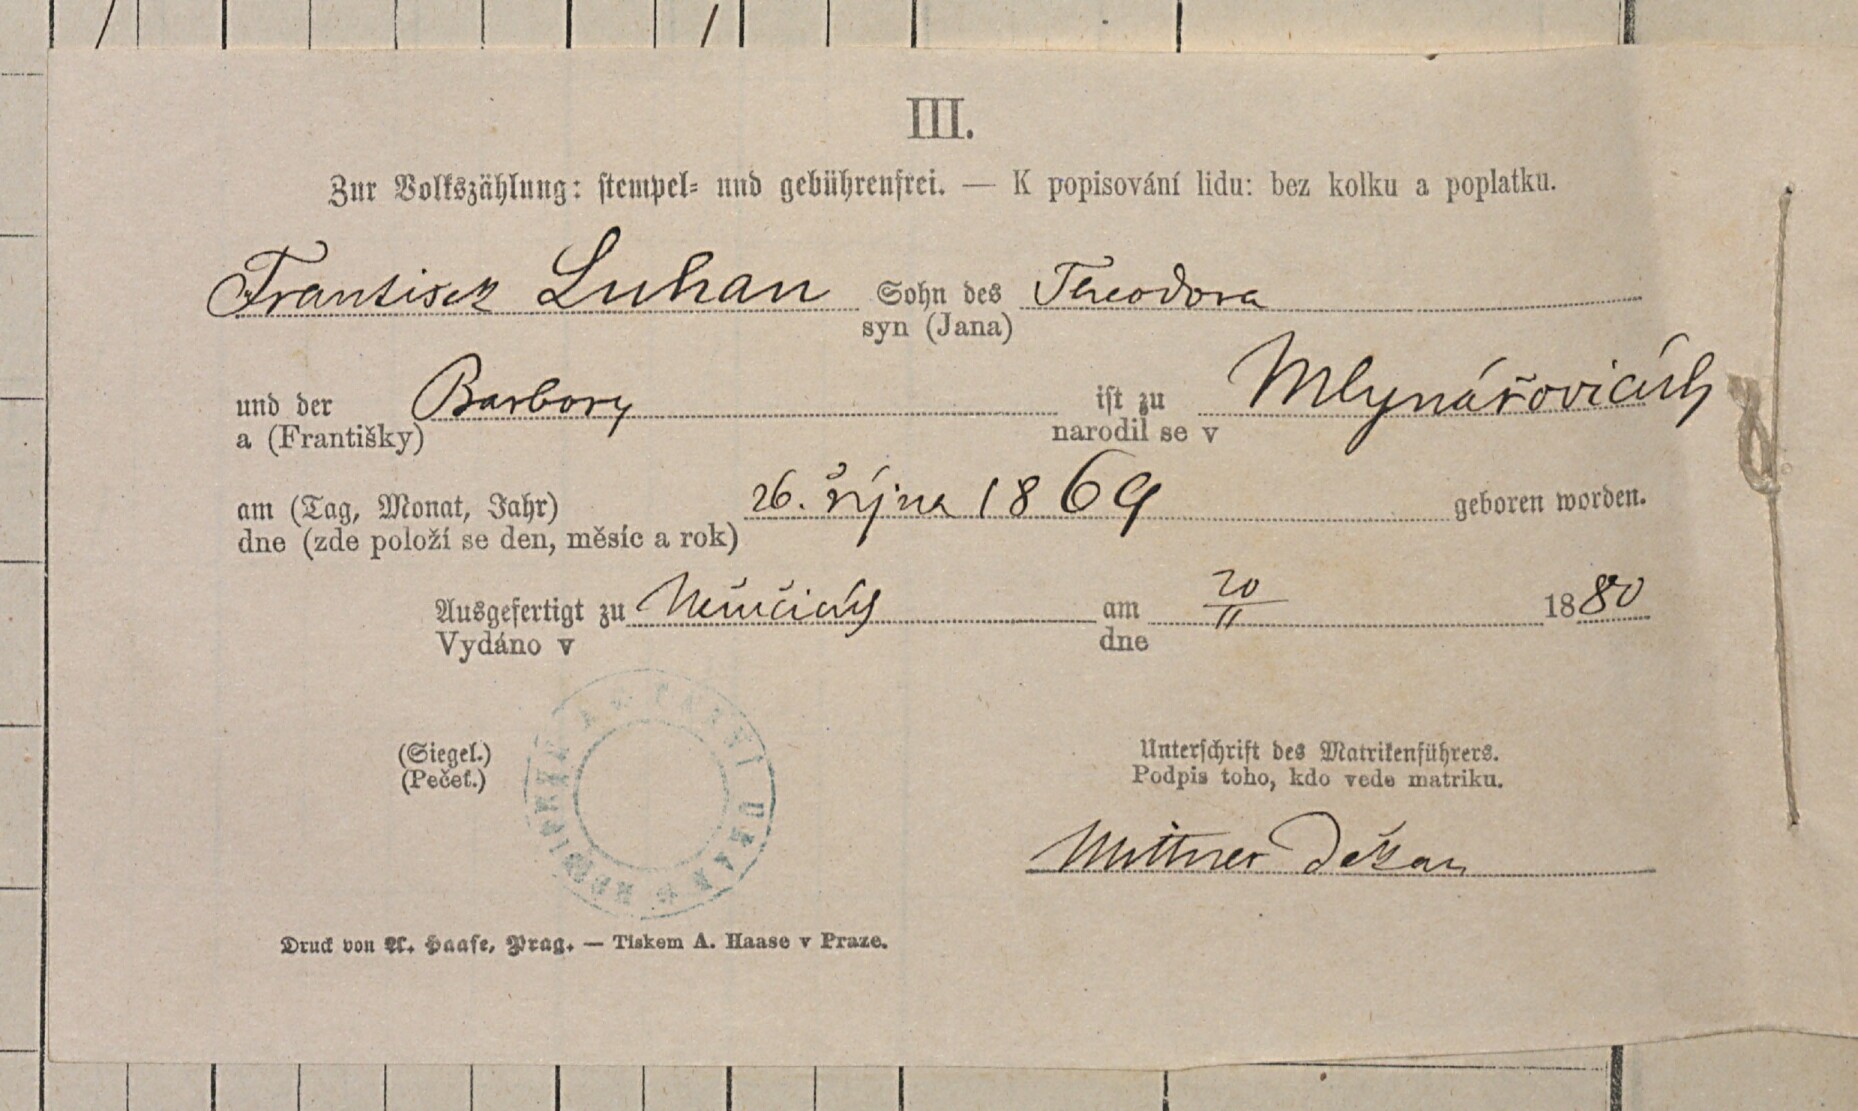 III.
Zur Volkszählung: stempel- und gebührenfrei. — K popisování lidu: bez kolku a poplatku.
Frantisek Luhan Sohn des Theodora
syn (Jana)
und der Barbory ist zu Mlynářovicích
a (Františky) narodil se v
am (Tag, Monat, Jahr) 26. října 1869 geboren worden.
dne (zde položí se den, měsíc a rok)
Ausgefertigt zu Němčicích am 20/11 1880
Vydáno v dne
(Siegel.) Unterschrift des Matrikenführers.
(Pečeť.) Podpis toho, kdo vede matriku.
Mittner Děkan
Druck von A. Haase, Prag. — Tiskem A. Haase v Praze.